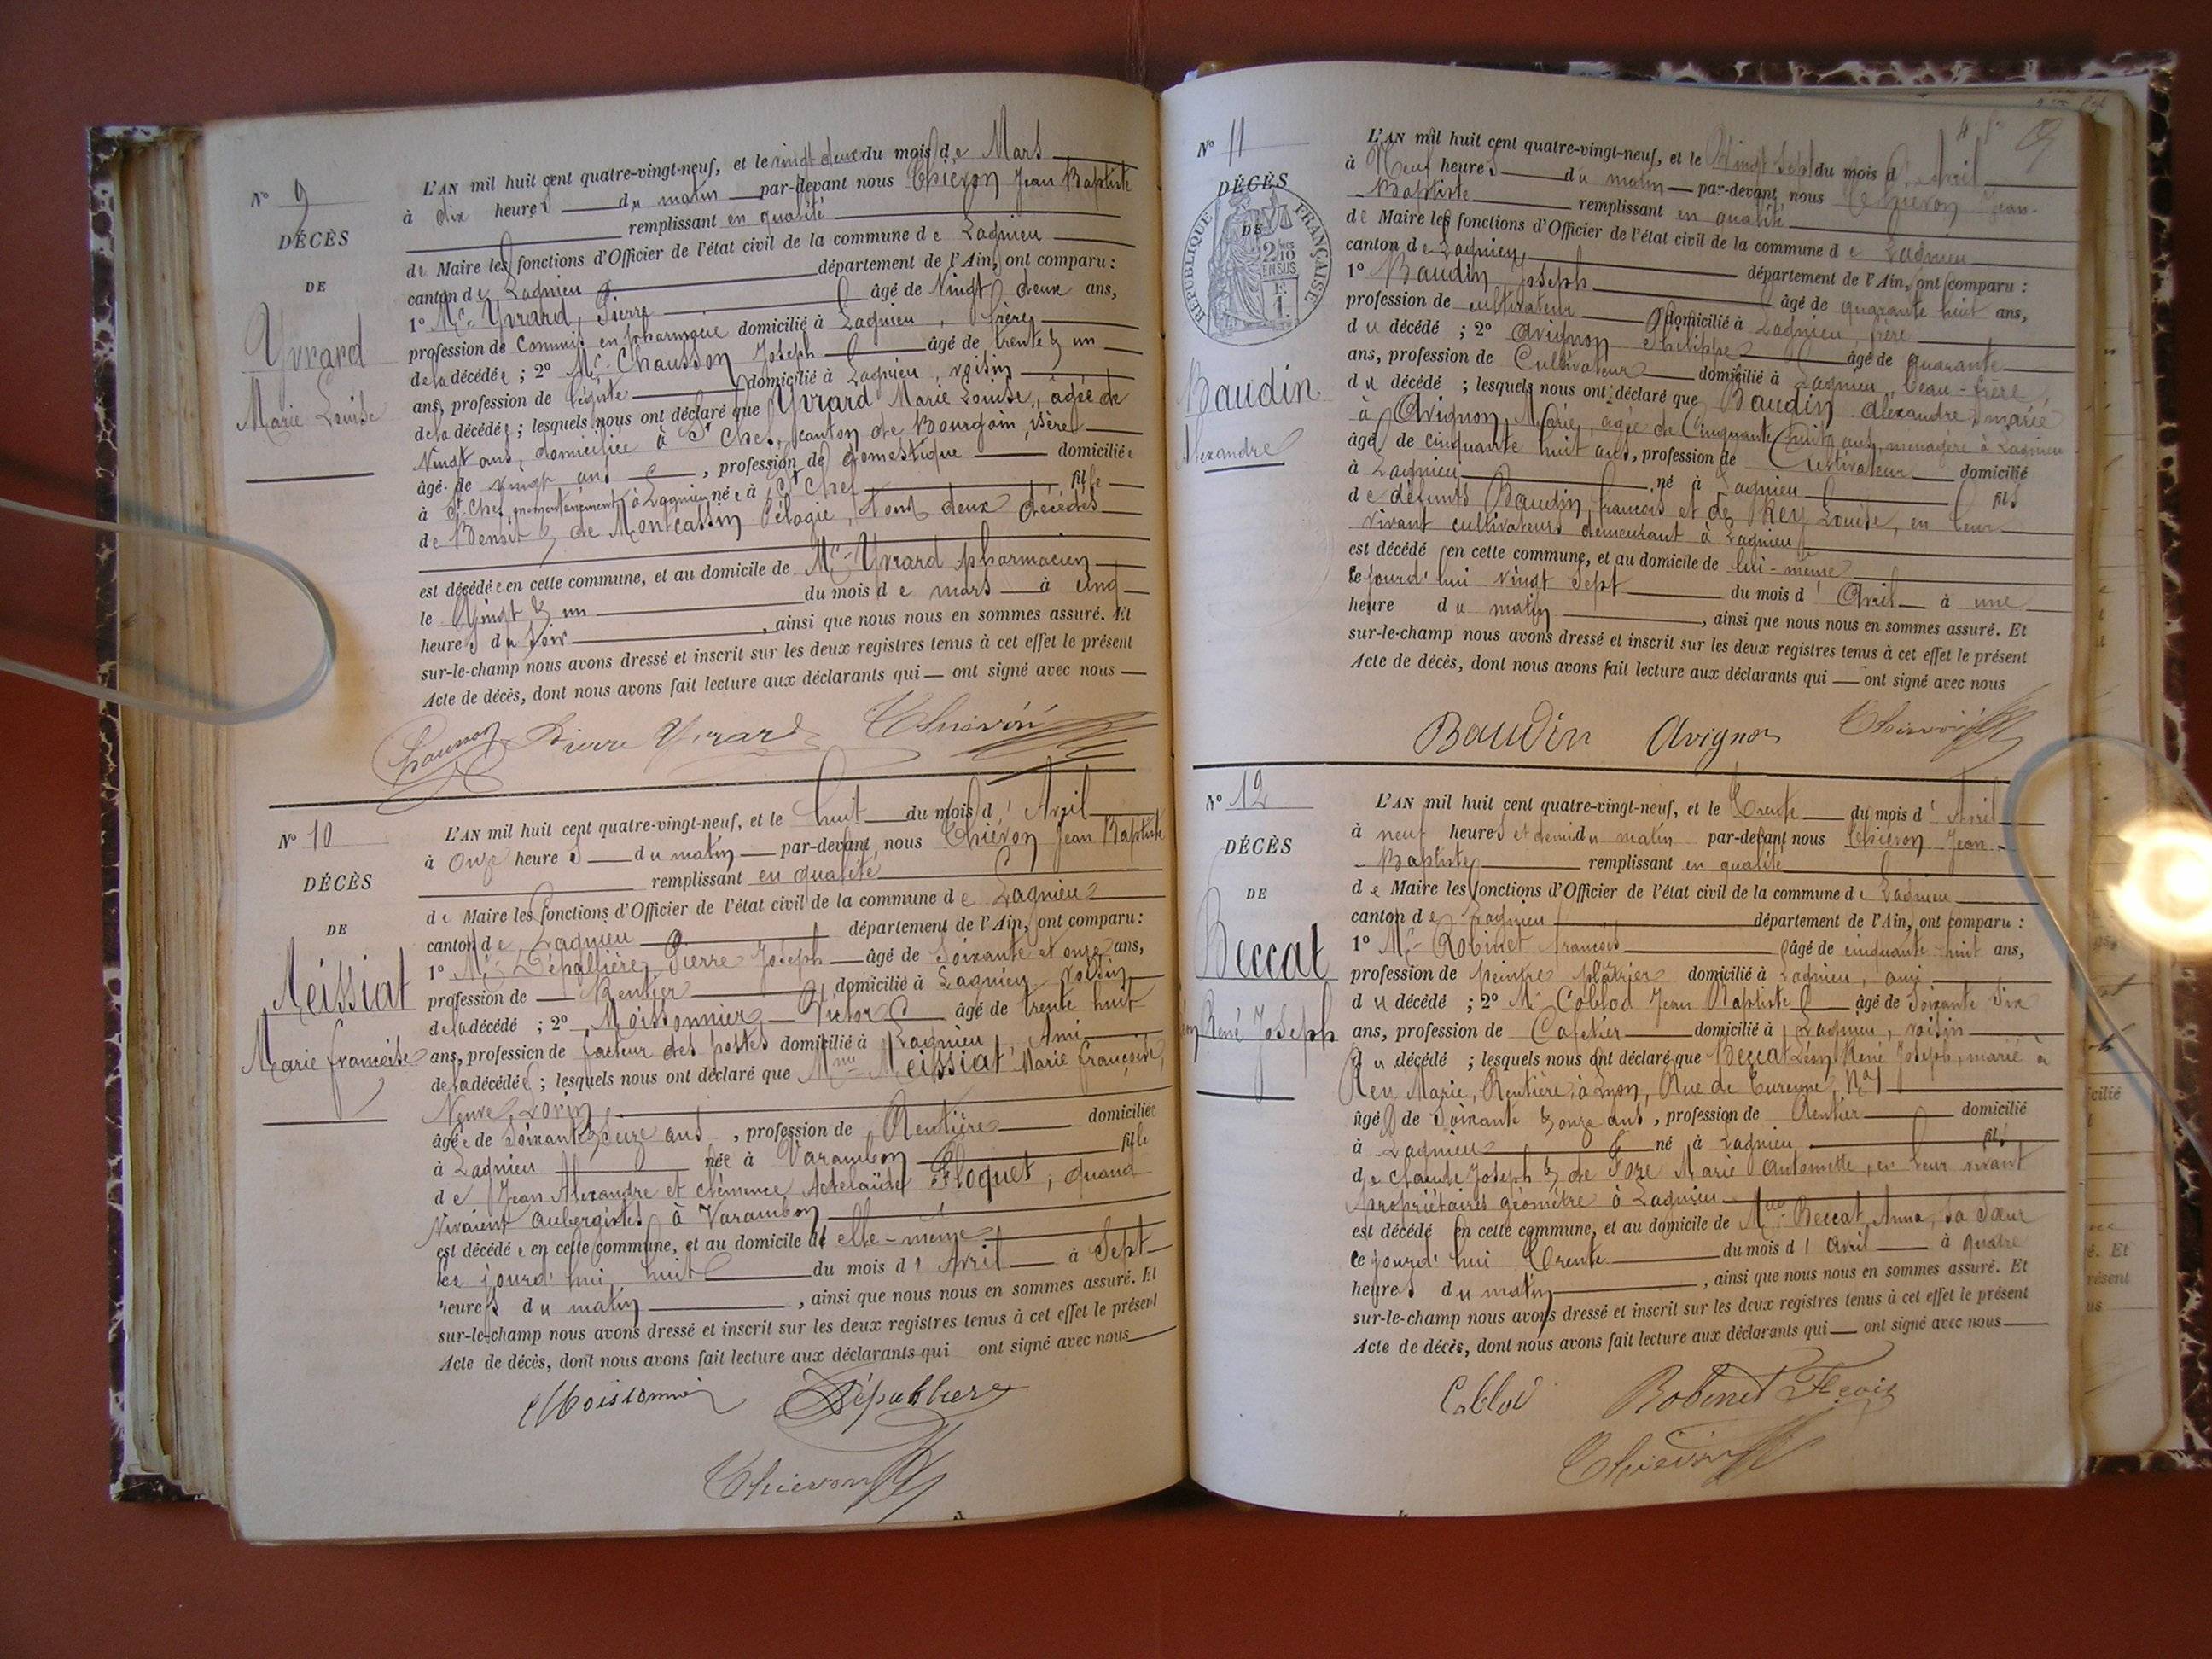 N° 9
DÉCÈS
DE
Yvrard
Marie Louise
L'AN mil huit cent quatre-vingt-neuf, et le vingt deux du mois de Mars
à dix heures du matin par-devant nous Thiévon Jean Baptiste
remplissant en qualité
de Maire les fonctions d'Officier de l'état civil de la commune de Lagnieu
canton de Lagnieu département de l'Ain, ont comparu :
1° Mr Yvrard, Pierre âgé de vingt deux ans,
profession de Commis en pharmacie domicilié à Lagnieu, frère
de la décédée ; 2° Mr Chausson Joseph âgé de trente & un
ans, profession de domicilié à Lagnieu, voisin
de la décédée ; lesquels nous ont déclaré que Yvrard Marie Louise, agée de
Vingt ans, domiciliée à St Chef, canton de Bourgoin, isère
âgé de vingt ans, profession de domestique domiciliée
à St Chef momentanément à Lagnieu née à St Chef fille
de Benoit & de Moncassin Pélagie, tous deux décédés
est décédée en cette commune, et au domicile de Mr Yvrard pharmacien
le Vingt & un du mois de mars à cinq
heures du soir, ainsi que nous nous en sommes assuré. Et
sur-le-champ nous avons dressé et inscrit sur les deux registres tenus à cet effet le présent
Acte de décès, dont nous avons fait lecture aux déclarants qui ont signé avec nous
Chausson Pierre Yvrard Thiévon
N° 10
DÉCÈS
DE
Meissiat
Marie françoise
L'AN mil huit cent quatre-vingt-neuf, et le huit du mois d'Avril
à Onze heures du matin par-devant nous Thiévon Jean Baptiste
remplissant en qualité
de Maire les fonctions d'Officier de l'état civil de la commune de Lagnieu
canton de Lagnieu département de l'Ain, ont comparu :
1° Mr Dépallière, Pierre Joseph âgé de Soixante et onze ans,
profession de Rentier domicilié à Lagnieu voisin
de la décédé ; 2° Moissonnier Victor âgé de trente huit
ans, profession de facteur des postes domicilié à Lagnieu, Ami
de la décédée ; lesquels nous ont déclaré que Mme Meissiat Marie françoise,
Veuve
âgée de Soixante & seize ans, profession de Rentière domiciliée
à Lagnieu née à Varambon fille
de Jean Alexandre et Clémence Adelaïde Floquet, quand
vivaient aubergistes à Varambon,
est décédée en cette commune, et au domicile de elle-même
le jourd'hui, huit du mois d'Avril à Sept
heures du matin, ainsi que nous nous en sommes assuré. Et
sur-le-champ nous avons dressé et inscrit sur les deux registres tenus à cet effet le présent
Acte de décès, dont nous avons fait lecture aux déclarants qui ont signé avec nous
Moissonnier
Thiévon
N° 11
DÉCÈS
DE
RÉPUBLIQUE FRANÇAISE
2/10 EN SUS
Baudin
Alexandre
L'AN mil huit cent quatre-vingt-neuf, et le Vingt Sept du mois d'Avril
à Neuf heures du matin par-devant nous Thiévon Jean-
Baptiste remplissant en qualité
de Maire les fonctions d'Officier de l'état civil de la commune de Lagnieu
canton de Lagnieu, département de l'Ain, ont comparu :
1° Baudin Joseph âgé de quarante huit ans,
profession de cultivateur domicilié à Lagnieu, frère
du décédé ; 2° Avignon Philippe âgé de Quarante
ans, profession de Cultivateur domicilié à Lagnieu, beau-frère,
du décédé ; lesquels nous ont déclaré que Baudin Alexandre, marié
à Avignon, Marie, agée de Cinquante huit ans, ménagère à Lagnieu
âgé de cinquante huit ans, profession de Cultivateur domicilié
à Lagnieu né à Lagnieu fils
de défunts Baudin, françois et de Rey Louise, en leur
vivant cultivateurs demeurant à Lagnieu
est décédé en cette commune, et au domicile de lui-même
le jourd'hui vingt Sept du mois d'Avril à une
heure du matin, ainsi que nous nous en sommes assuré. Et
sur-le-champ nous avons dressé et inscrit sur les deux registres tenus à cet effet le présent
Acte de décès, dont nous avons fait lecture aux déclarants qui ont signé avec nous
Baudin Avignon Thiévon
N° 12
DÉCÈS
DE
Beccat
René Joseph
L'AN mil huit cent quatre-vingt-neuf, et le Trente du mois d'Avril
à neuf heures et demi du matin par-devant nous Thiévon Jean-
Baptiste remplissant en qualité
de Maire les fonctions d'Officier de l'état civil de la commune de Lagnieu
canton de Lagnieu département de l'Ain, ont comparu :
1° Mr Robinet françois âgé de cinquante-huit ans,
profession de peintre plâtrier domicilié à Lagnieu, ami
du décédé ; 2° Mr Coblod Jean Baptiste âgé de soixante six
ans, profession de Cafetier domicilié à Lagnieu, voisin
du décédé ; lesquels nous ont déclaré que Beccat Léon René Joseph, marié à
Rey Marie, Rentière, à Lyon, Rue de Turenne, N° 1
âgé de Soixante & onze ans, profession de Rentier domicilié
à Lagnieu né à Lagnieu fils
de Claude Joseph & de Marie Antoinette, en leur vivant
propriétaires géomètre à Lagnieu
est décédé en cette commune, et au domicile de Mlle Beccat Anna, sa Sœur
ce jourd'hui Trente du mois d'Avril à quatre
heures du matin, ainsi que nous nous en sommes assuré. Et
sur-le-champ nous avons dressé et inscrit sur les deux registres tenus à cet effet le présent
Acte de décès, dont nous avons fait lecture aux déclarants qui ont signé avec nous
Coblod Robinet
Thiévon